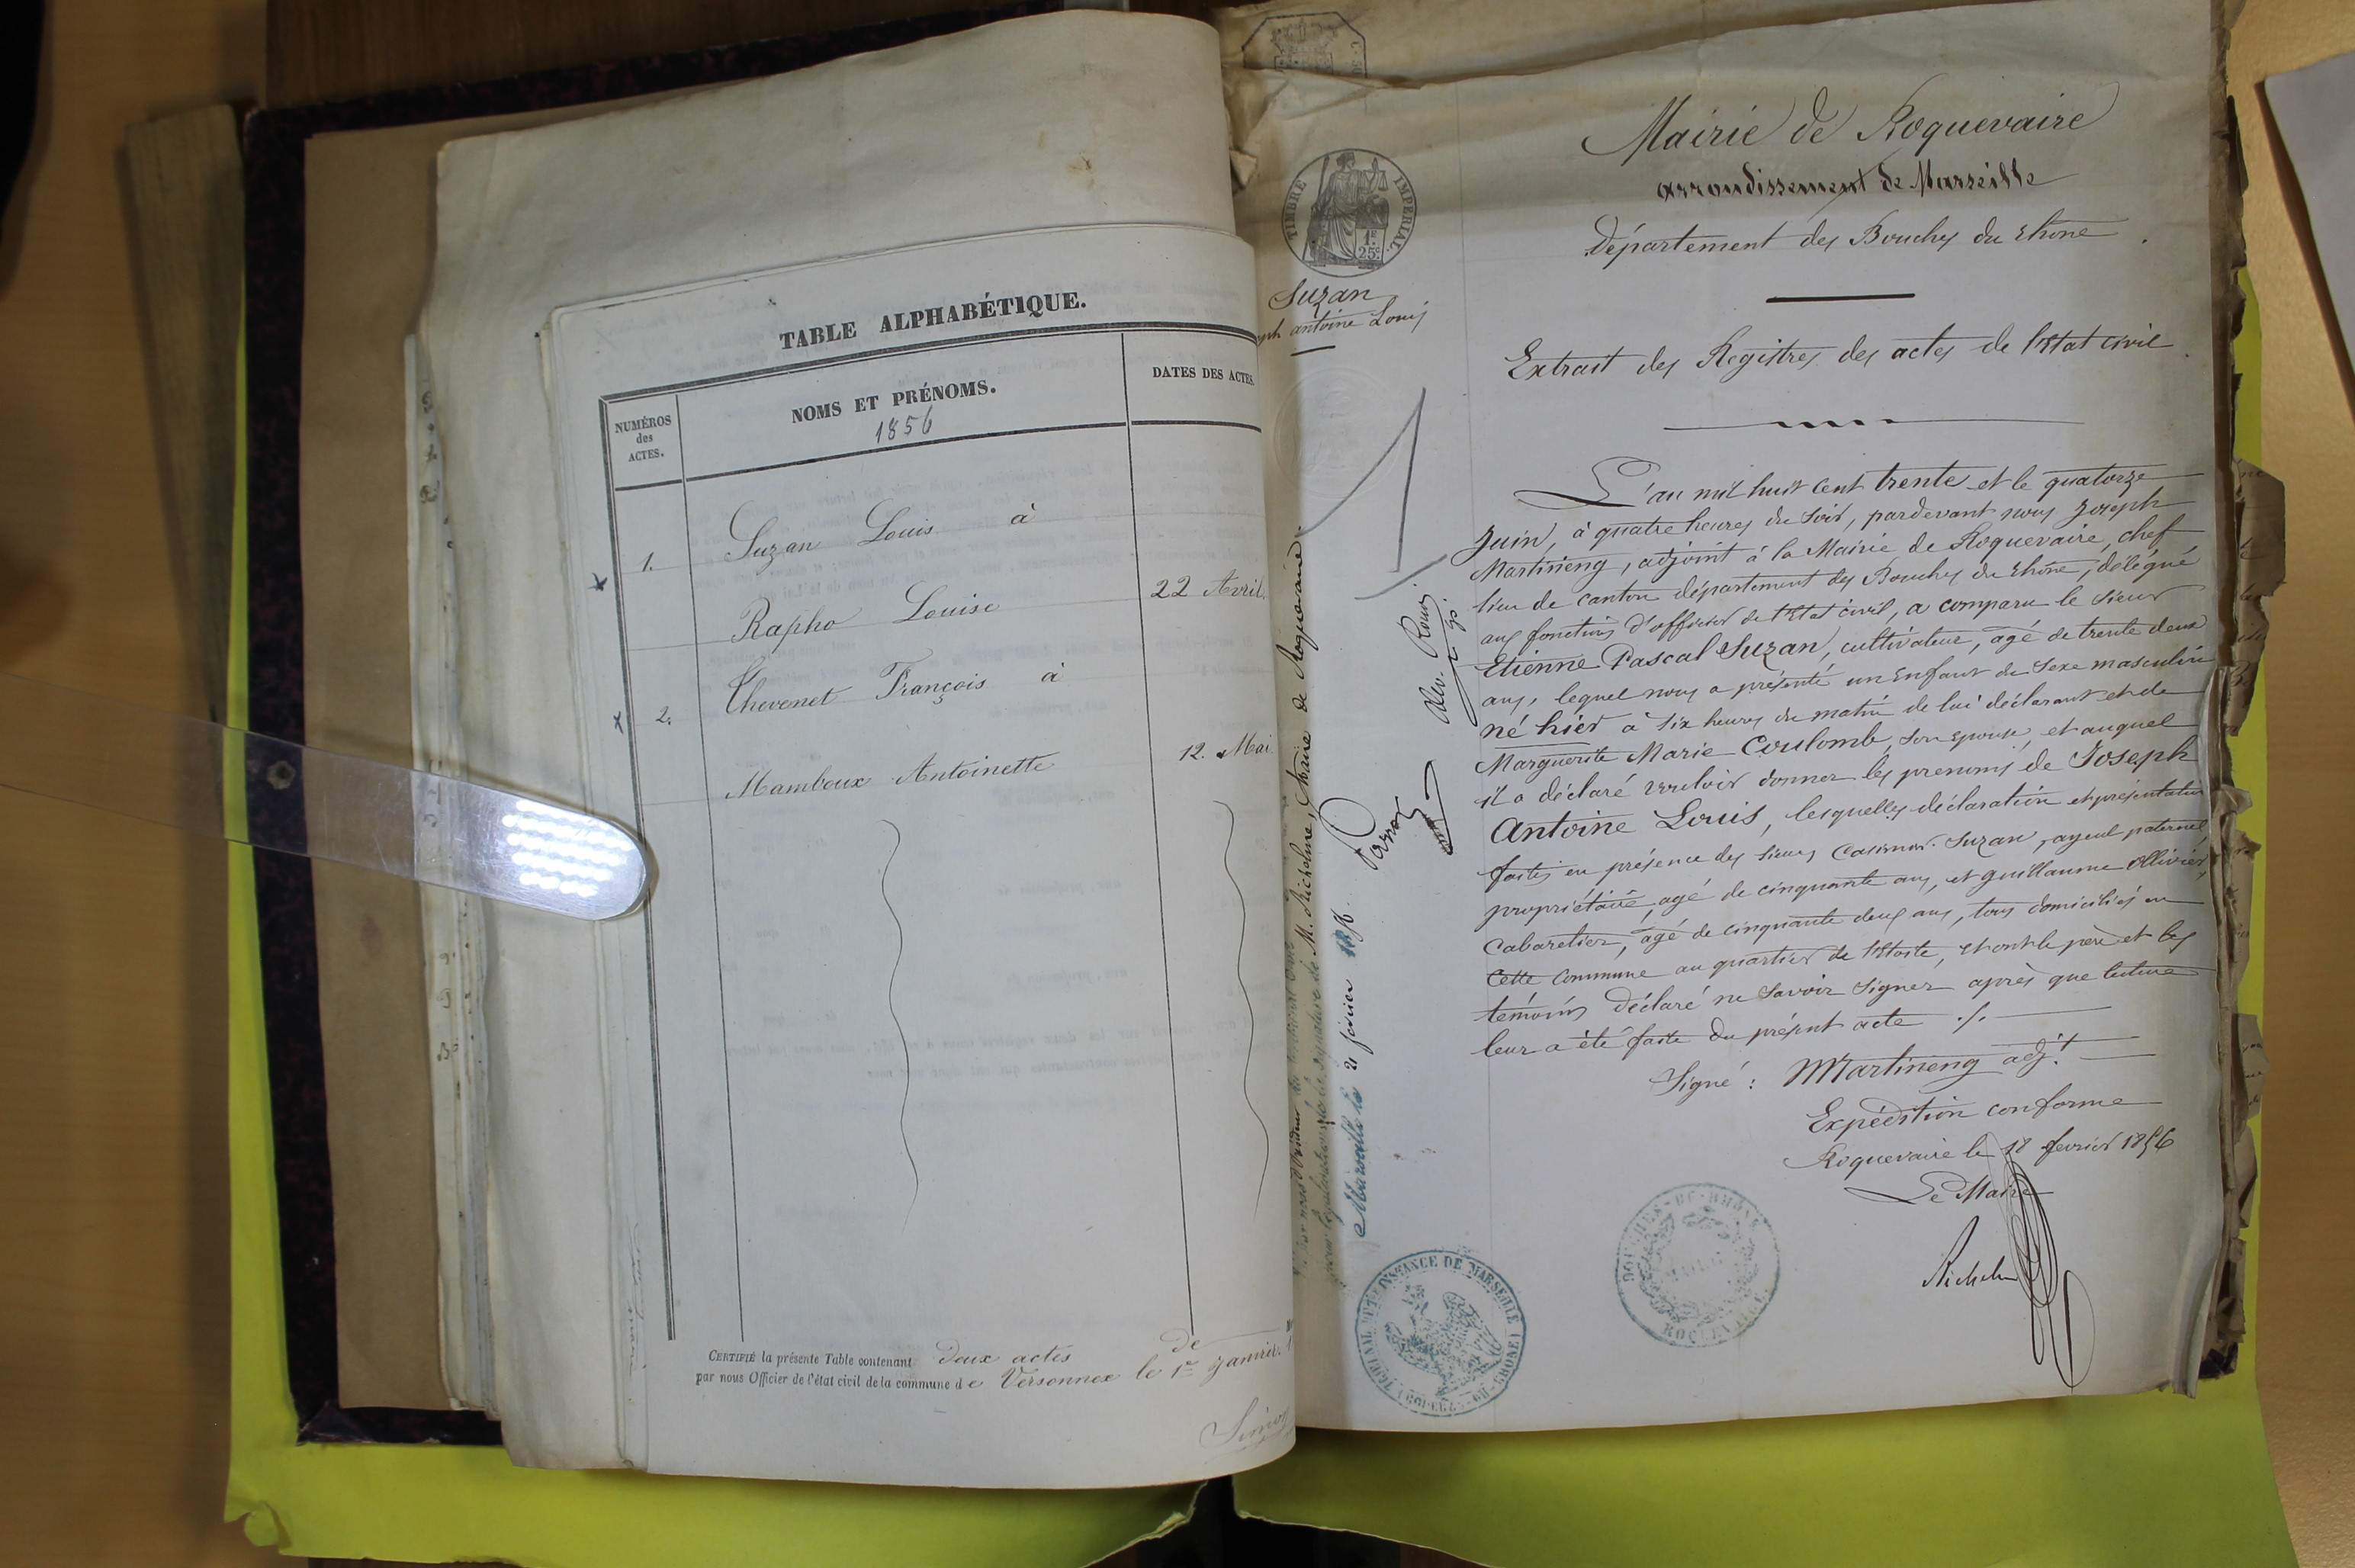 TABLE ALPHABÉTIQUE.
NUMÉROS
des
ACTES.
NOMS ET PRÉNOMS.
1856
DATES DES ACTES
1. Suzan Louis à
Rapho Louise 22 Avril.
2. Chevenet François à
Mamboux Antoinette 12. Mai
CERTIFIÉ la présente Table contenant deux actes de
par nous Officier de l'état civil de la commune de Versonnex le 1er Janvier
TIMBRE IMPERIAL.
1F
25c
Suzan
antoine Louis
1
Mairie de Roquevaire
arrondissement de Marseille
Département des Bouches du Rhône
Extrait des Registres des actes de l'Etat civil
L'an mil huit cent trente et le quatorze
Juin, à quatre heures du soir, pardevant nous Joseph
Martineng, adjoint à la Mairie de Roquevaire, chef
lieu de canton département des Bouches du Rhône, délégué
aux fonctions d'officier de l'Etat civil, a comparu le sieur
Etienne Pascal Suzan, cultivateur, agé de trente deux
ans, lequel nous a présenté un Enfant du Sexe masculin
né hier à six heures du matin de lui déclarant et de
Marguerite Marie Coulomb, son epouse, et auquel
il a déclaré vouloir donner les prenoms de Joseph
Antoine Louis, lesquelles déclaration et présentation
faites en présence des sieurs Casimir Suzan, ayeul paternel
propriétaire, agé de cinquante ans, et guillaume Ollivier,
Cabaretier, agé de cinquante deux ans, tous domiciliés en
Cette commune au quartier de l'Etoile, et ont le père et les
témoins déclaré ne savoir signer après que lecture
leur a été faite du présent acte ./.
Signé : Martineng adj.t
Expédition conforme
Roquevaire le 18 fevrier 1856
Le Maire
de M. Richelme, Maire de Roquevaire.
Marseille le 21 février 1856.
TRIBUNAL DE 1ERE INSTANCE DE MARSEILLE (BOUCHES-DU-RHONE)
BOUCHES-DU-RHÔNE
ROQUEVAIRE